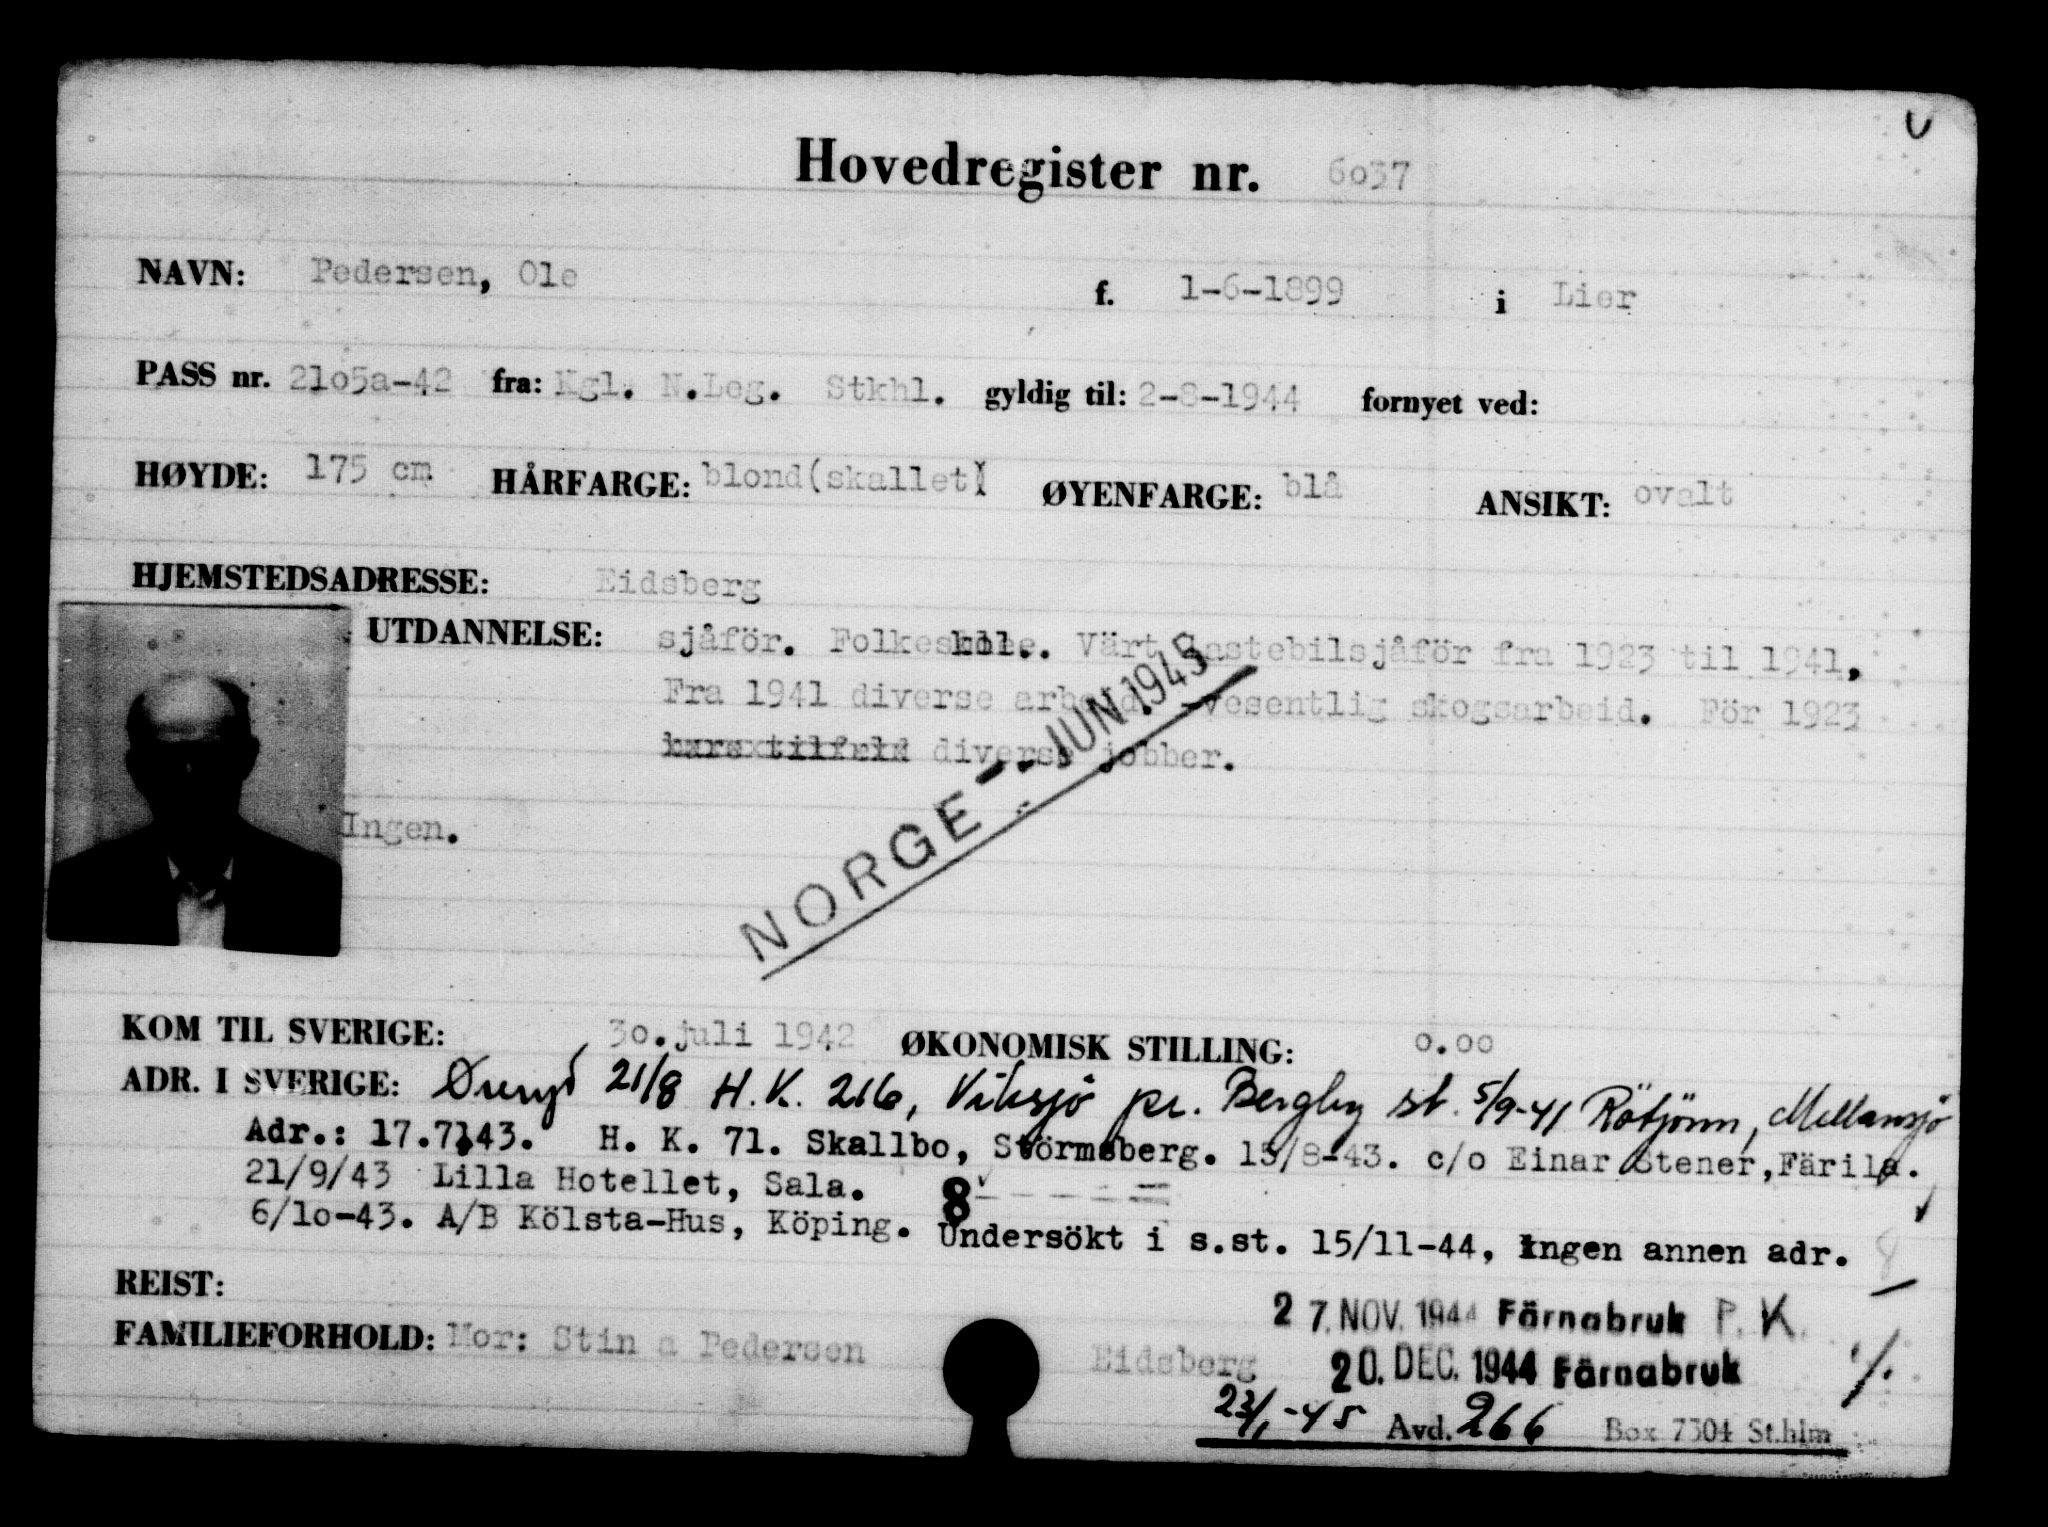 Hovedregister nr. 6o37
NAVN: Pedersen, Ole f. 1-6-1899 i Lier
PASS nr. 21o5a-42 fra: Kgl. N.Leg. Stkhl. gyldig til: 2-8-1944 fornyet ved:
HØYDE: 175 cm HÅRFARGE: blond(skallet) ØYENFARGE: blå ANSIKT: ovalt
HJEMSTEDSADRESSE: Eidsberg
UTDANNELSE: sjåför. Folkeskole. Värt lastebilsjåför fra 1923 til 1941.
Fra 1941 diverse arbeid. -vesentlig skogsarbeid. För 1923
diverse jobber.
NORGE - JUNI 1945
Ingen.
KOM TIL SVERIGE: 3o.juli 1942 ØKONOMISK STILLING: o.oo
ADR. I SVERIGE: Öreryd 21/8 H.K. 216, Viksjö pr. Bergby st. 5/9-41 Rötjärn, Mellansjö
Adr.: 17.7.43. H. K. 71. Skallbo, Störmsberg. 13/8-43. c/o Einar Stener, Färila.
21/9/43 Lilla Hotellet, Sala. 8
6/1o-43. A/B Kölsta-Hus, Köping. Undersökt i s.st. 15/11-44, Ingen annen adr.
REIST:
2 7. NOV. 1944 Färnabruk P. K.
FAMILIEFORHOLD: Mor: Stin a Pedersen Eidsberg
20. DEC. 1944 Färnabruk
23/1-45 Avd. 266 Box 7304 St.hlm